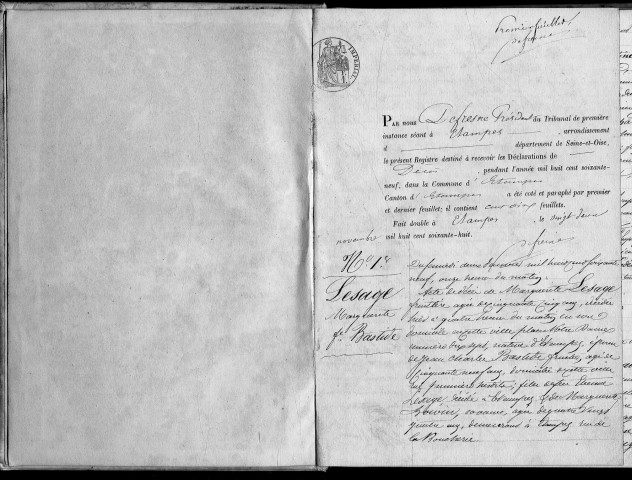 Premier feuillet
Defresne
IMPERIAL
PAR nous Defresne Président du Tribunal de première
instance séant à Etampes, arrondissement
d département de Seine-et-Oise,
le présent Registre destiné à recevoir les Déclarations de
Décès, pendant l'année mil huit cent soixante-
neuf, dans la Commune d'Etampes
Canton d'Etampes a été coté et paraphé par premier
et dernier feuillet; il contient feuillets.
Fait double à Etampes, le vingt deux
novembre
mil huit cent soixante-huit.
Defresne
No 1er
Lesage
Marguerite
fe Bastide
Du samedi deux Janvier mil huit cent soixante
neuf, onze heures du matin.
Acte de décès de Marguerite Lesage
fruitière agée de cinquante cinq ans, décédée
hier à quatre heures du matin en son
domicile en cette ville place Notre Dame
numéro dix sept, native d'Etampes, épouse
de Jean Charles Bastide fruitier, agé de
cinquante neuf ans, domicilié en cette ville
Lesage décédé à Etampes & de Marguerite
agée de quatre vingt
quatre ans, demeurant à Etampes rue de